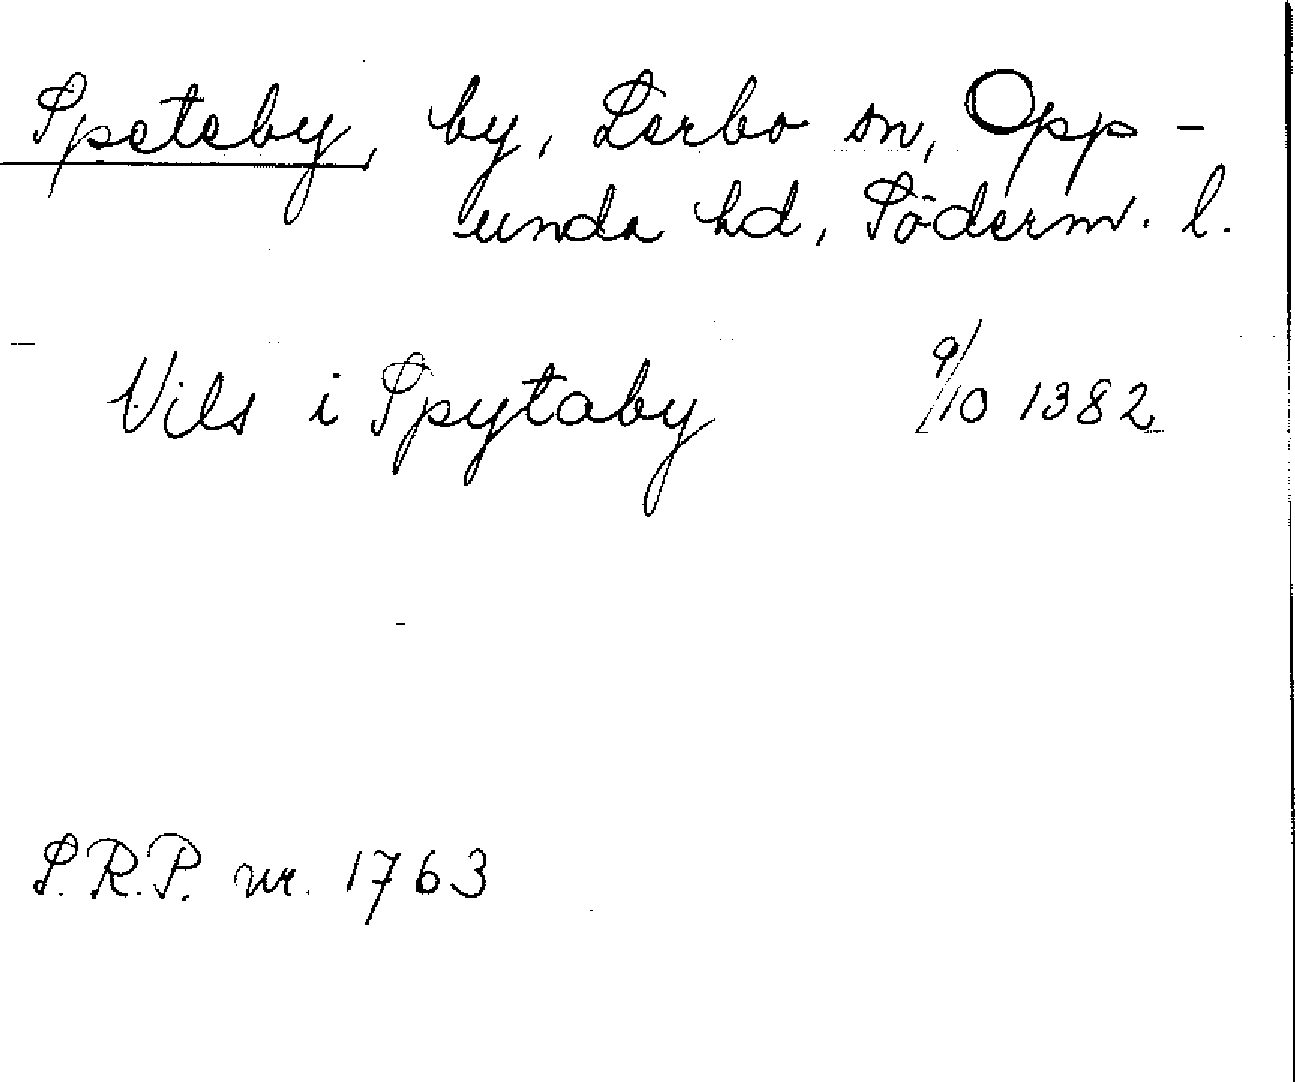 Speteby, by, Lerbo sn, Opp-
unda hd, Söderm. l.
Nils i Spytaby 9/10 1382
S.R.P. nr. 1763